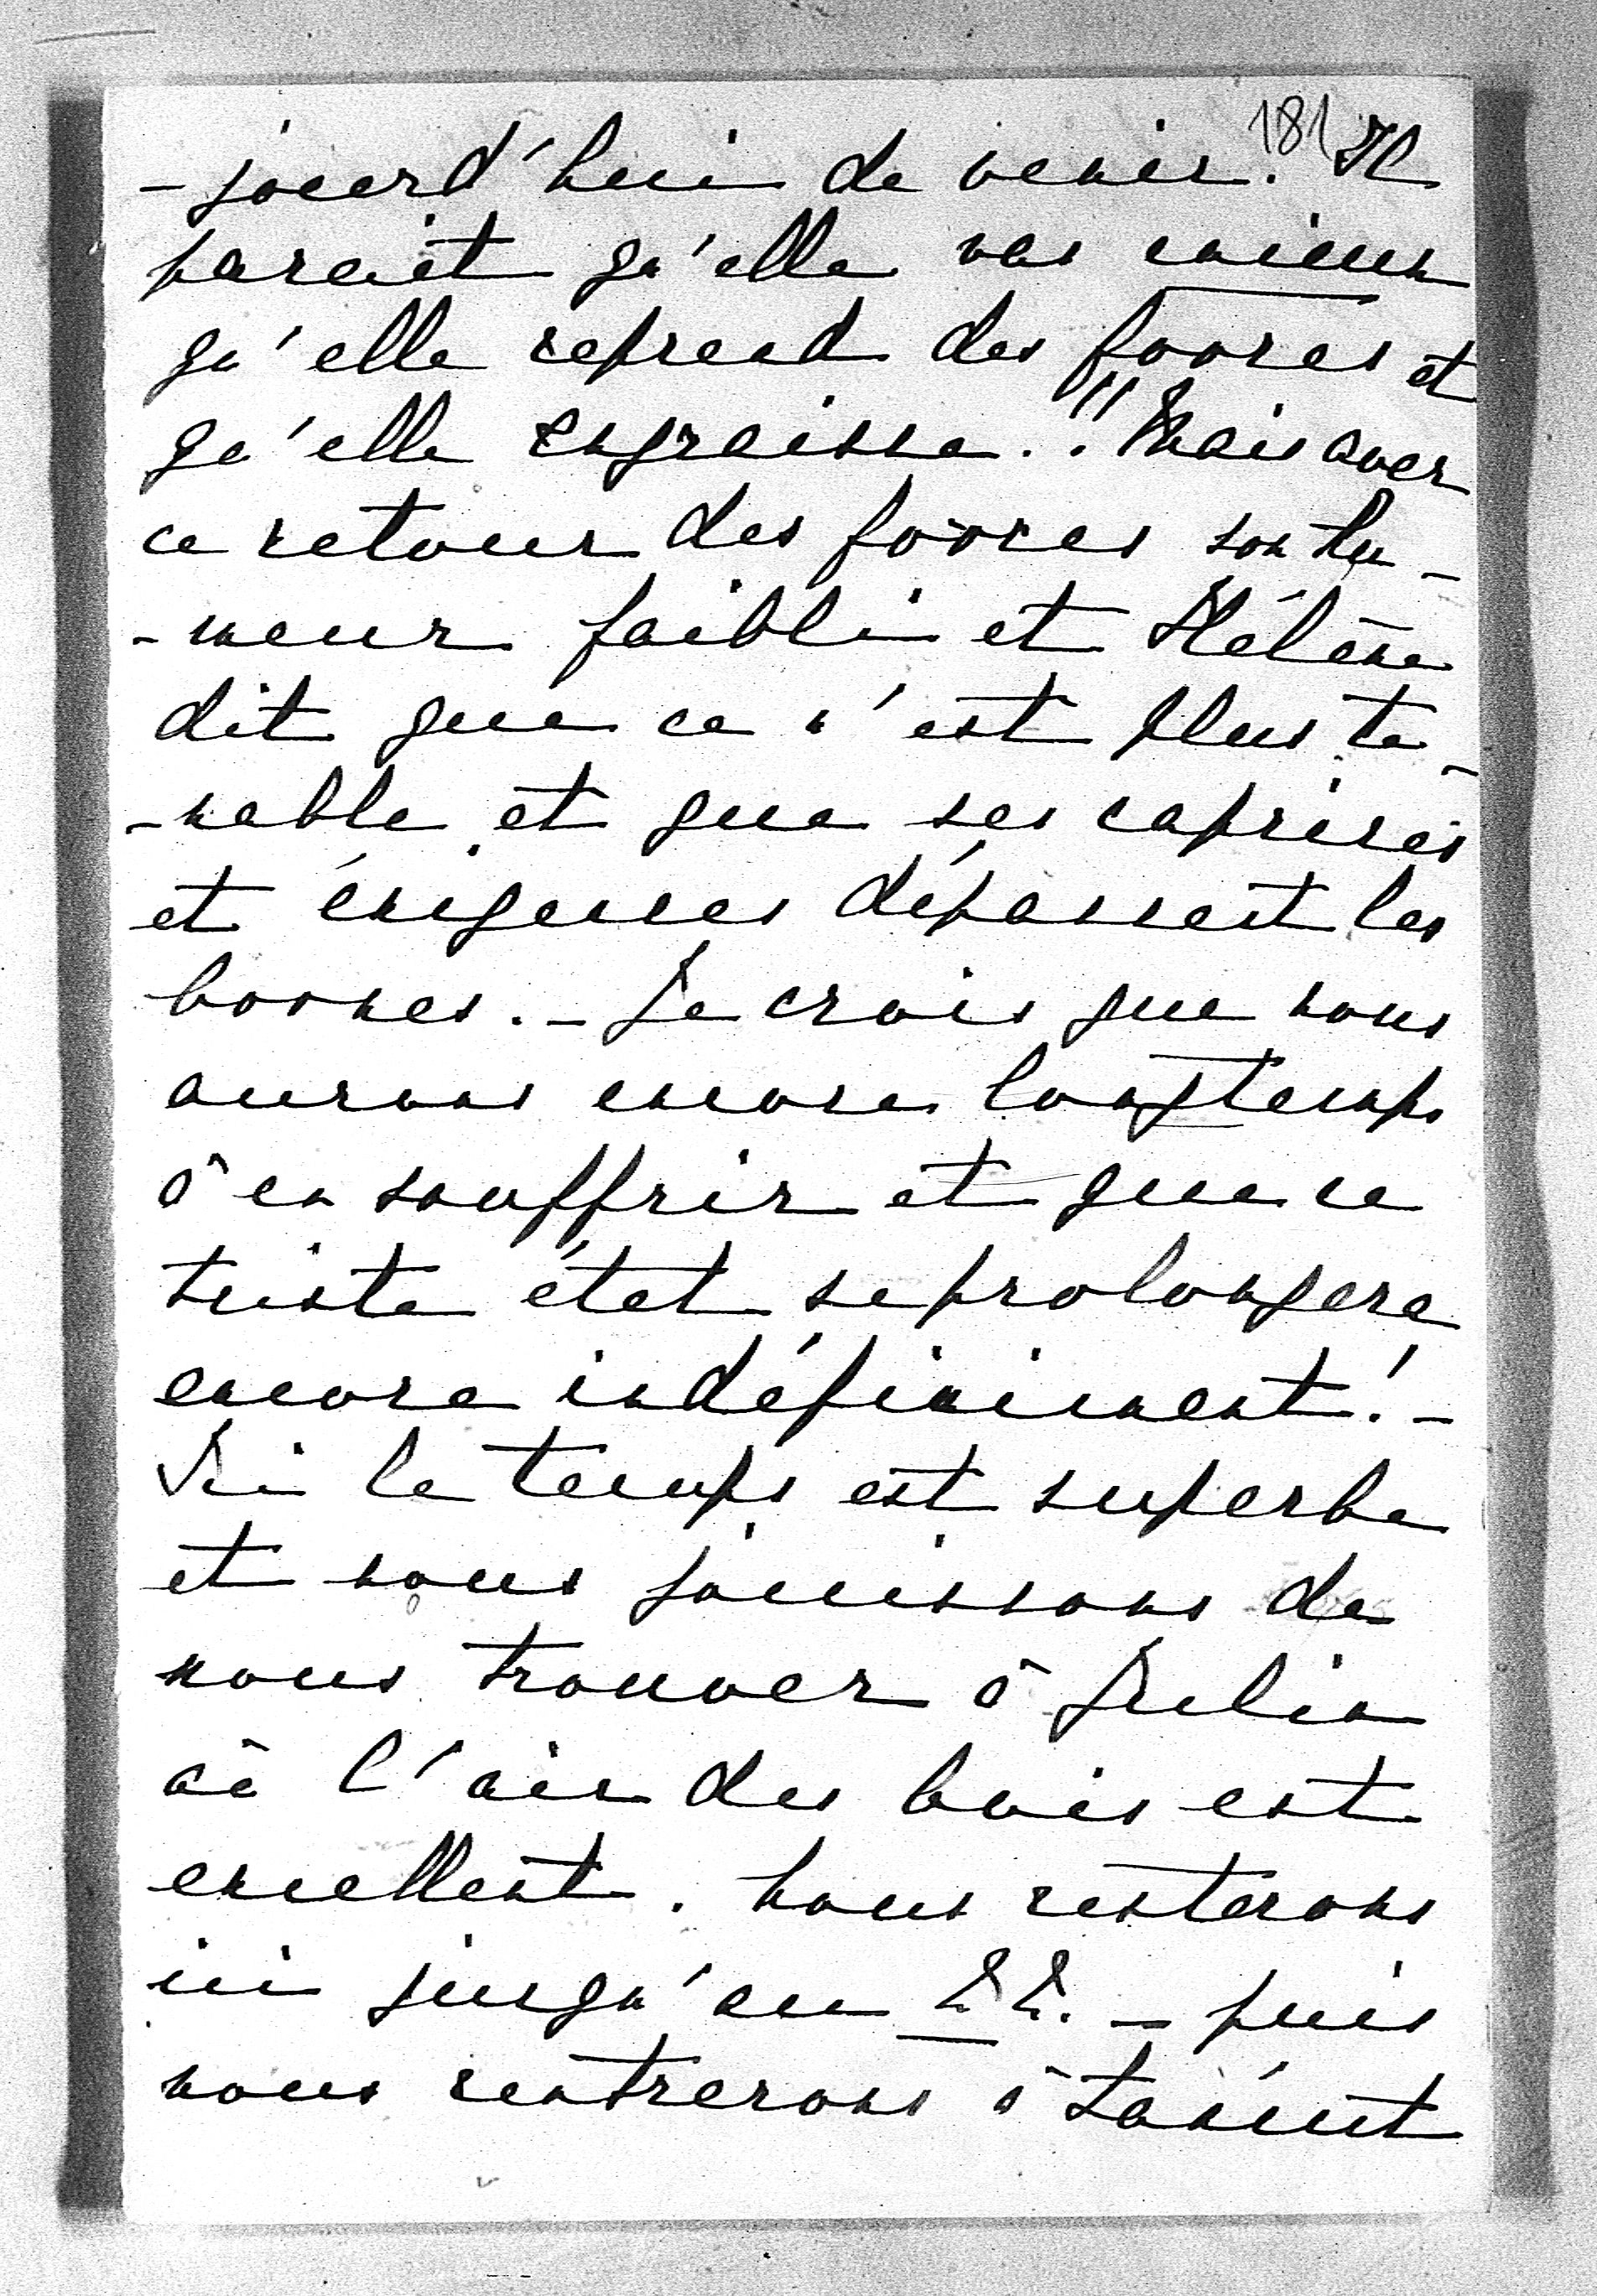 181
-jourd'hui de venir. Il
parait qu'elle vas mieux
qu'elle reprend des forces et
qu'elle engraisse..!! Mais avec
ce retour des forces son hu-
-meur faibli et Hélène
dit que ce n'est plus te-
-nable et que ses caprices
et éxigences dépassent les
bornes. - Je crois que nous
aurons encore longtemps
à en souffrir et que ce
triste état se prolongera
encore indéfiniment! -
Ici le temps est superbe
et nous jouissons de
nous trouver à
où l'air des bois est
excellent. Nous resterons
ici jusqu'au 22. - puis
nous rentrerons à